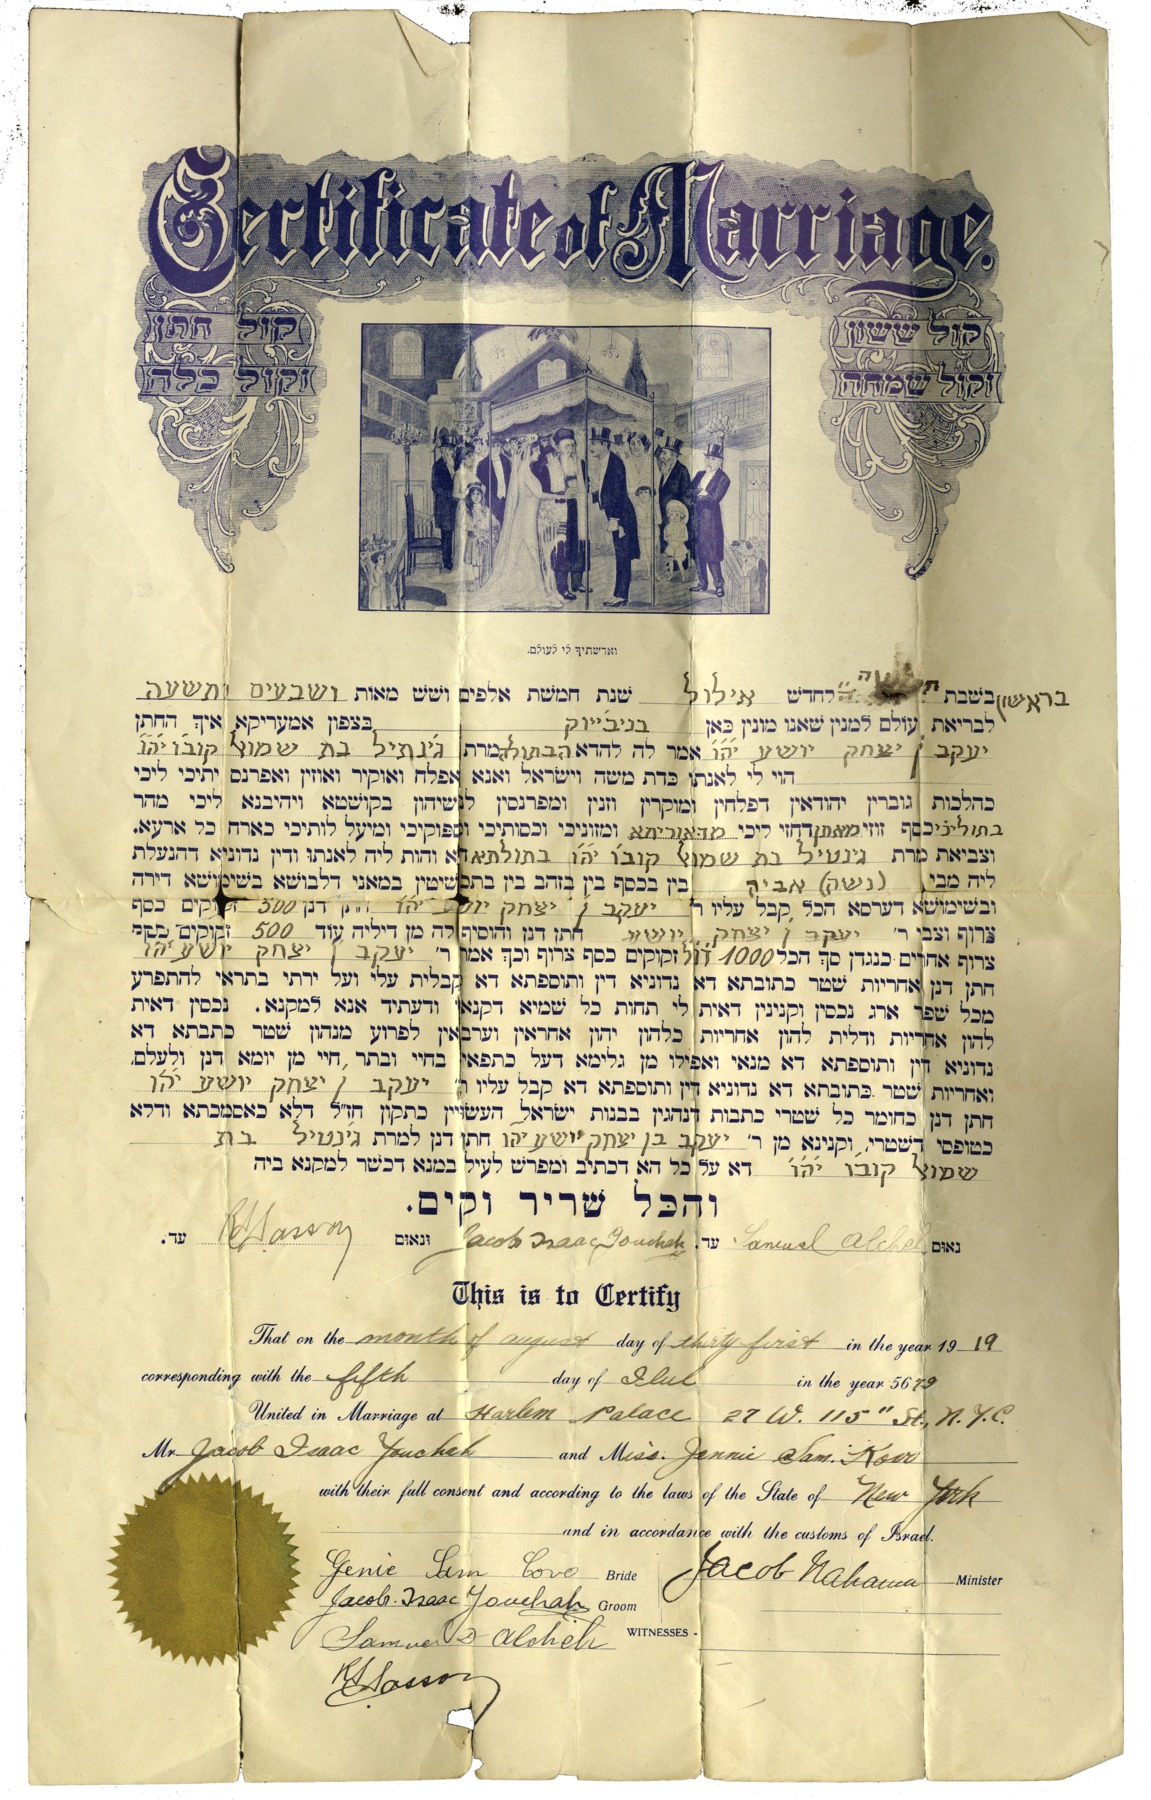 Certificate of Marriage.
קול ששון קול חתן
וקול שמחה וקול כלה
וארשתיך לי לעולם.
בראשון בשבת חמשה לחדש אילול שנת חמשת אלפים ושש מאות ושבעים ותשעה
לבריאת עולם למנין שאנו מונין כאן בניב״יוק בצפון אמעריקא איך החתן
יעקב ן׳ יצחק יושע יה״ו אמר לה להדא הבתולה מרת ג׳נטיל בת שמואל קובו יה״ו
הוי לי לאנתו כדת משה וישראל ואנא אפלח ואוקיר ואוזין ואפרנס יתיכי ליכי
כהלכות גוברין יהודאין דפלחין ומוקרין וזנין ומפרנסין לנשיהון בקושטא ויהיבנא ליכי מהר
בתוליכי כסף זוזי מאתן דחזי ליכי מדאוריתא ומזוניכי וכסותיכי וספוקיכי ומיעל לותיכי כארח כל ארעא.
וצביאת מרת ג׳נטיל בת שמואל קובו יה״ו בתולתא דא והות ליה לאנתו ודין נדוניא דהנעלת
ליה מבי (נשק) אביה בין בכסף בין בזהב בין בתכשיטין במאני דלבושא בשימושא דירה
ובשימושא דערסא הכל קבל עליו ר׳ יעקב ן׳ יצחק יושע יה״ו חתן דנן 500 זקוקים כסף
צרוף וצבי ר׳ יעקב ן׳ יצחק יושע חתן דנן והוסיף לה מן דיליה עוד 500 זקוקים כסף
צרוף אחרים כנגדן סך הכל 1000 דול׳ זקוקים כסף צרוף וכך אמר ר׳ יעקב ן׳ יצחק יושע יה״ו
חתן דנן אחריות שטר כתובתא דא נדוניא דין ותוספתא דא קבלית עלי ועל ירתי בתראי להתפרע
מכל שפר ארג נכסין וקנינין דאית לי תחות כל שמיא דקנאי ודעתיד אנא למקנא. נכסין דאית
להון אחריות ודלית להון אחריות כלהון יהון אחראין וערבאין לפרוע מנהון שטר כתבתא דא
נדוניא דין ותוספתא דא מנאי ואפילו מן גלימא דעל כתפאי בחיי ובתר חיי מן יומא דנן ולעלם.
ואחריות שטר כתובתא דא נדוניא דין ותוספתא דא קבל עליו ר׳ יעקב ן׳ יצחק יושע יה״ו
חתן דנן כחומר כל שטרי כתבות דנהגין בבנות ישראל העשויין כתקון חז״ל דלא כאסמכתא ודלא
כטופסי דשטרי, וקנינא מן ר׳ יעקב בן יצחק יושע יה״ו חתן דנן למרת ג׳נטיל בת
שמואל קובו יה״ו דא על כל הא דכתיב ומפרש לעיל במנא דכשר למקנא ביה
והכל שריר וקים.
נאום Samuel Alcheh עד. Jacob Isaac Youchah ונאום R S Sasson עד.
This is to Certify
That on the month of august day of thirty first in the year 1919
corresponding with the fifth day of Ilul in the year 5679
United in Marriage at Harlem Palace 27 W. 115" St., N.Y.C.
Mr. Jacob Isaac Youchah and Miss. Jennie Sam. Kovo
with their full consent and according to the laws of the State of New York
and in accordance with the customs of Israel.
Genie Sam Covo Bride Jacob Nahama Minister
Jacob. Isaac Youchah Groom
Samuel D Alcheh WITNESSES
R S Sasson